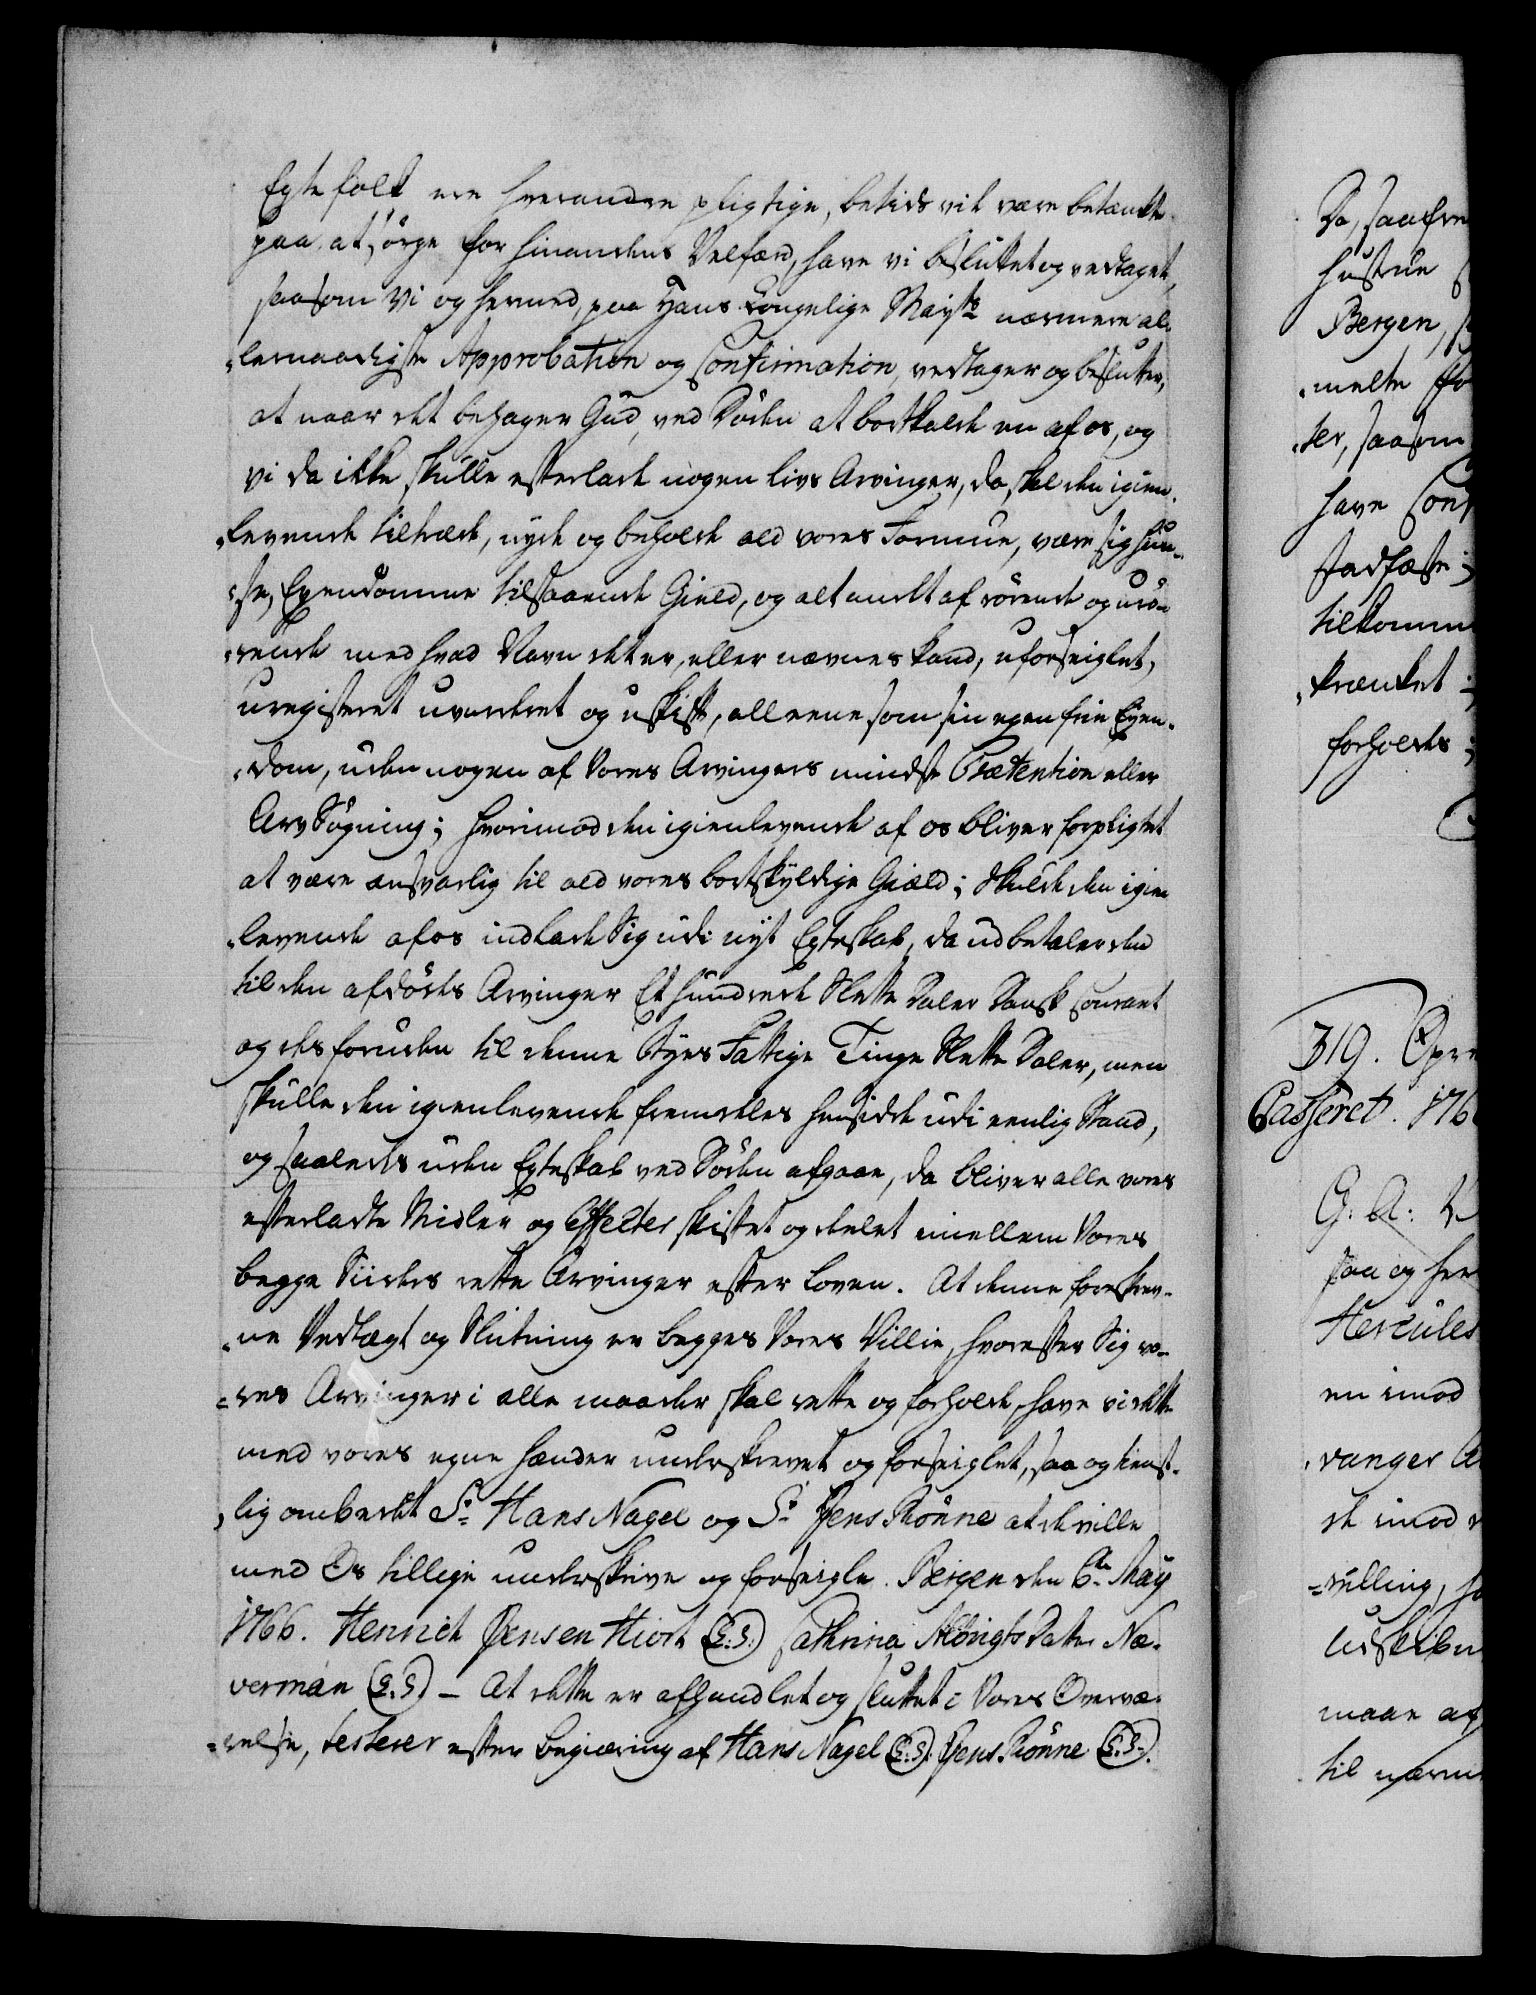 Egte folk ere hverandre pligtige, betids vil være betænkte
paa at sörge for hinandens Velfærd, have vi besluttet og vedtaget,
saasom Vi og hermed, paa Hans Kongelige Mayts nærmere al-
lernaadigste Approbation og Confirmation, vedtager og beslutter,
at naar det behager Gud, ved Döden at bortkalde en af os, og
vi da ikke skulle efterlade nogen Livs Arvinger, da skal den igien-
levende tiltræde, nyde og beholde ald vores Formue, være sig Huu-
se, Eyendomme tilstaaende Gield, og alt andet af rörende og urö-
rende med hvad Navn det er, eller nævnes kand, uforseiglet,
uregisteret uvurderet og uskift, alleene som sin egen frie Eyen-
dom, uden nogen af Vores Arvingers mindste Prætention eller
Arv Sögning; hvorimod den igienlevende af os bliver forpligtet
at være ansvarlig til ald vores bortskyldige Giæld; Skulde den igien
levende af os indlade Sig udi nyt Egteskab, da udbetaler den
til den afdödes Arvinger Et hundrede Slette Daler Dansk Courant
og desforuden til denne Byes Fattige Tinge Slette Daler, men
skulle den igienlevende fremdeles hensidde udi eenlig Stand,
og saaledes uden Egteskab ved Döden afgaae, da bliver alle vores
efterladte Midler og Effecter skiftet og deelet imellem Vores
begge Siiders rette Arvinger efter Loven. At denne foreskrev-
ne Vedtægt og Slutning er begges Vores Villie, hvorefter Sig vo-
res Arvinger i alle maader skal rette og forholde, have vi dette
med vores egne hænder underskrevet og forseiglet, saa og tienst-
lig ombedet Sr Hans Nagel og Sr Jens Rönne at de ville
med Os tillige underskrive og forseigle. Bergen den 6te May
1766. Henrich Jensen Hiort (L:S:) Cathrina Albrigts Datter Næ-
verman (L:S:) - At dette er afhandlet og sluttet i Vores Overvæ-
relse, testerer efter begiæring af Hans Nagel (L:S:). Jens Rönne (L:S:).
Da, saafre
hustrue
Bergen,
melte
ter, saasom
have Conf
stadfæste;
tilkomme
krænket
forholdes
319. Opre
Passeret. 176
G. A: V
saa og her
Hercules
en imod
vanger A
de imod
maae af
til nærm